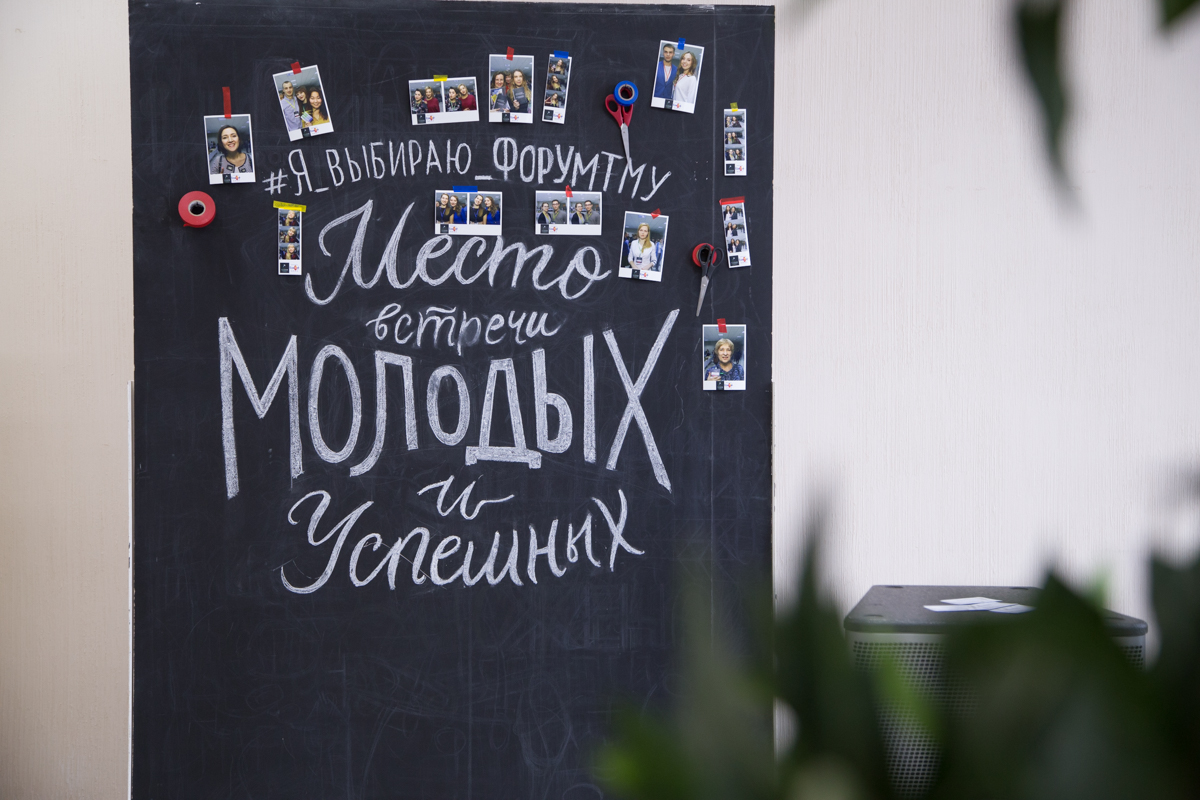 #Я_ВЫБИРАЮ_ФОРУМТМУ
Место
встречи
МОЛОДЫХ
и
Успешных